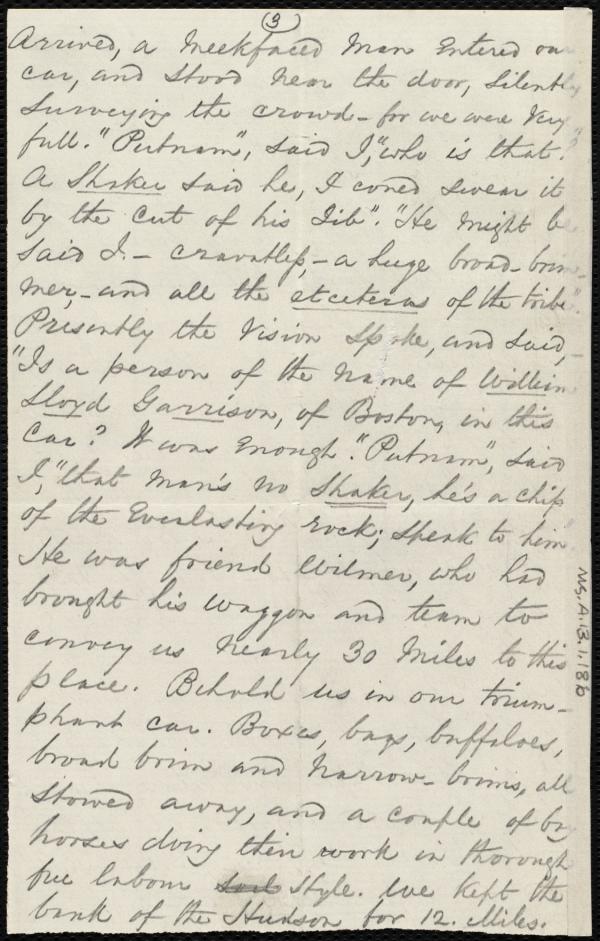 (3)
Arrived, a meekfaced man entered our
car, and stood near the door, silently
surveying the crowd - for we were very
full. "Putnam", said I, "who is that?"
A Shaker said he, I coued swear it
by the cut of his Jib". "He might be
said I. - cravatless, - a huge broad-brim-
mer, - and all the etceteras of the tribe".
Presently the vision spoke, and said, -
"Is a person of the name of William
Lloyd Garrison, of Boston, in this
car? It was enough. "Putnam", said
I, "that man's no Shaker, he's a chip
of the Everlasting rock; speak to him"
He was friend Wilmer, who had
brought his waggon and team to
convey us nearly 30 miles to this
place. Behold us in our trium-
phant car. Boxes, bags, buffaloes,
broad brim and narrow-brims, all
stowed away, and a couple of big
horses doing their work in thorough
free labour style. We kept the
bank of the Hudson for 12. miles.
Ms.A.1.3.1.18b